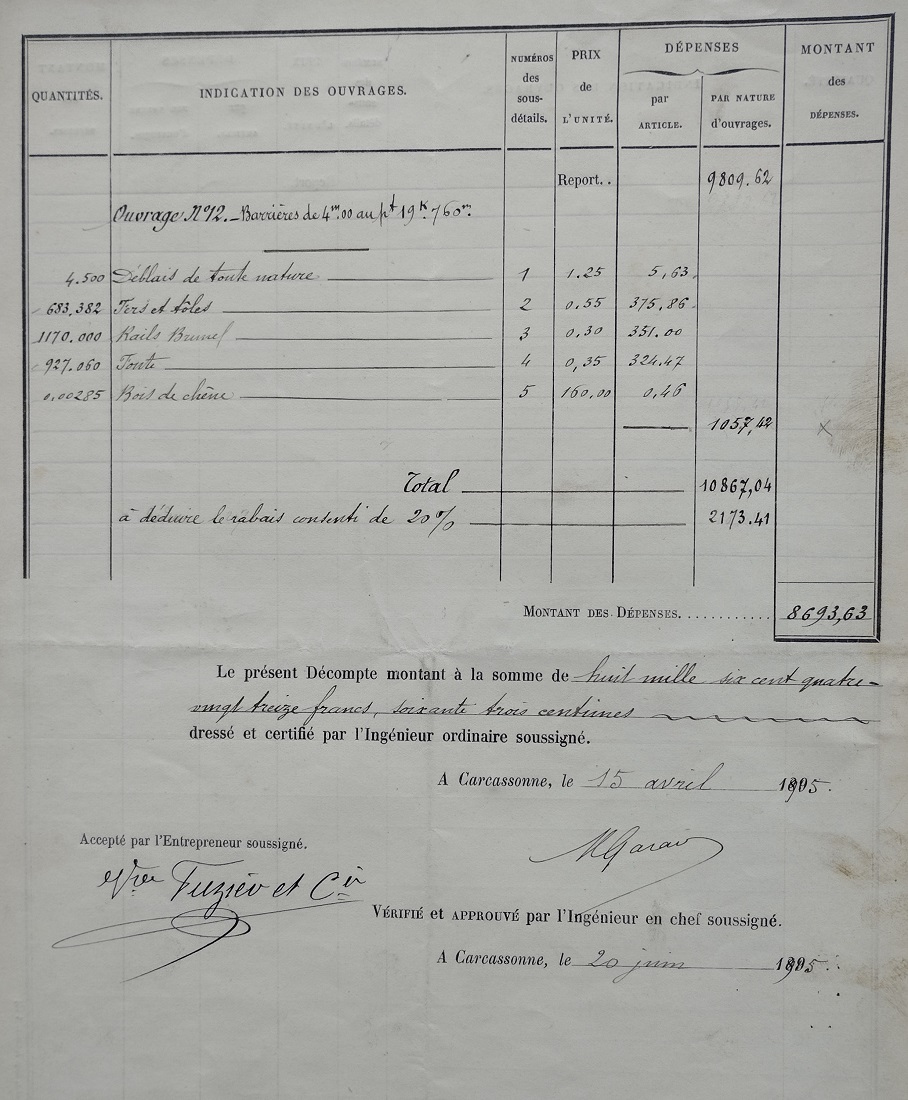 QUANTITÉS. INDICATION DES OUVRAGES. NUMÉROS des sous-détails. PRIX de L'UNITÉ. DÉPENSES par ARTICLE. PAR NATURE d'ouvrages. MONTANT des DÉPENSES.
Report. . 9809.62
Ouvrage N°12. _ Barrières de 4m.00 au pt 19K 760m.
4.500 Déblais de toute nature 1 1.25 5,63
683,382 Fers et tôles 2 0.55 375,86
1170.000 Rails Brunel 3 0,30 351.00
927.060 Fonte 4 0,35 324.47
0.00285 Bois de chêne 5 160,00 0,46
1057,42
Total 10867,04
à déduire le rabais consenti de 20% 2173.41
MONTANT DES DÉPENSES. . . . . . . . . . . . 8693,63
Le présent Décompte montant à la somme de huit mille six cent quatre-
vingt treize francs, soixante trois centimes
dressé et certifié par l'Ingénieur ordinaire soussigné.
A Carcassonne, le 15 avril 1905.
Accepté par l'Entrepreneur soussigné.
Vve Fuzier et Cie
VÉRIFIÉ et APPROUVÉ par l'Ingénieur en chef soussigné.
A Carcassonne, le 20 juin 1905.